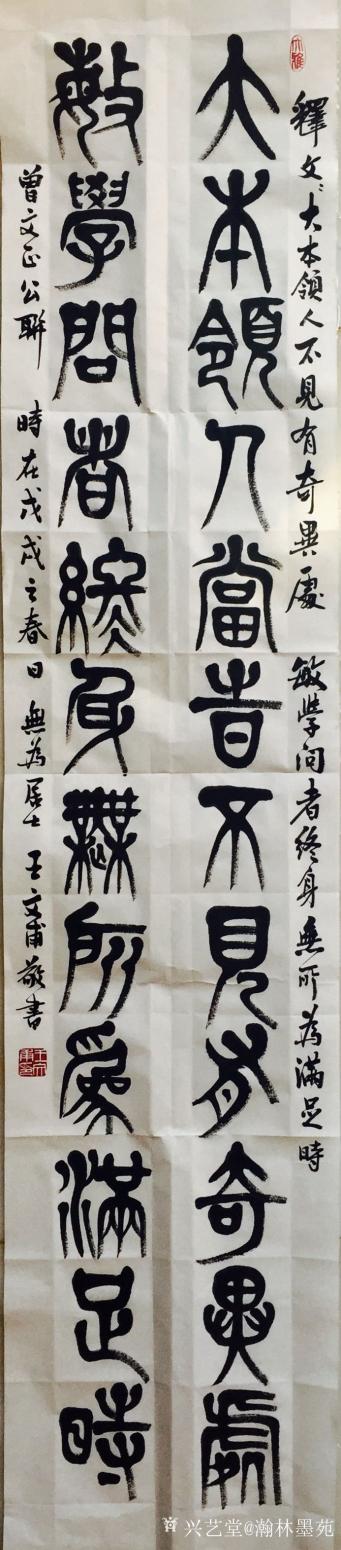 大雅
釋文：大本領人不見有奇異處 敏學問者終身無所為滿足時
大本領人當旹不見有奇異處
敏學問者終身無所為滿足時
曾文正公聯 時在戊戌之春日 無為居士 王文甫敬書
王文甫印
兴艺堂@瀚林墨苑